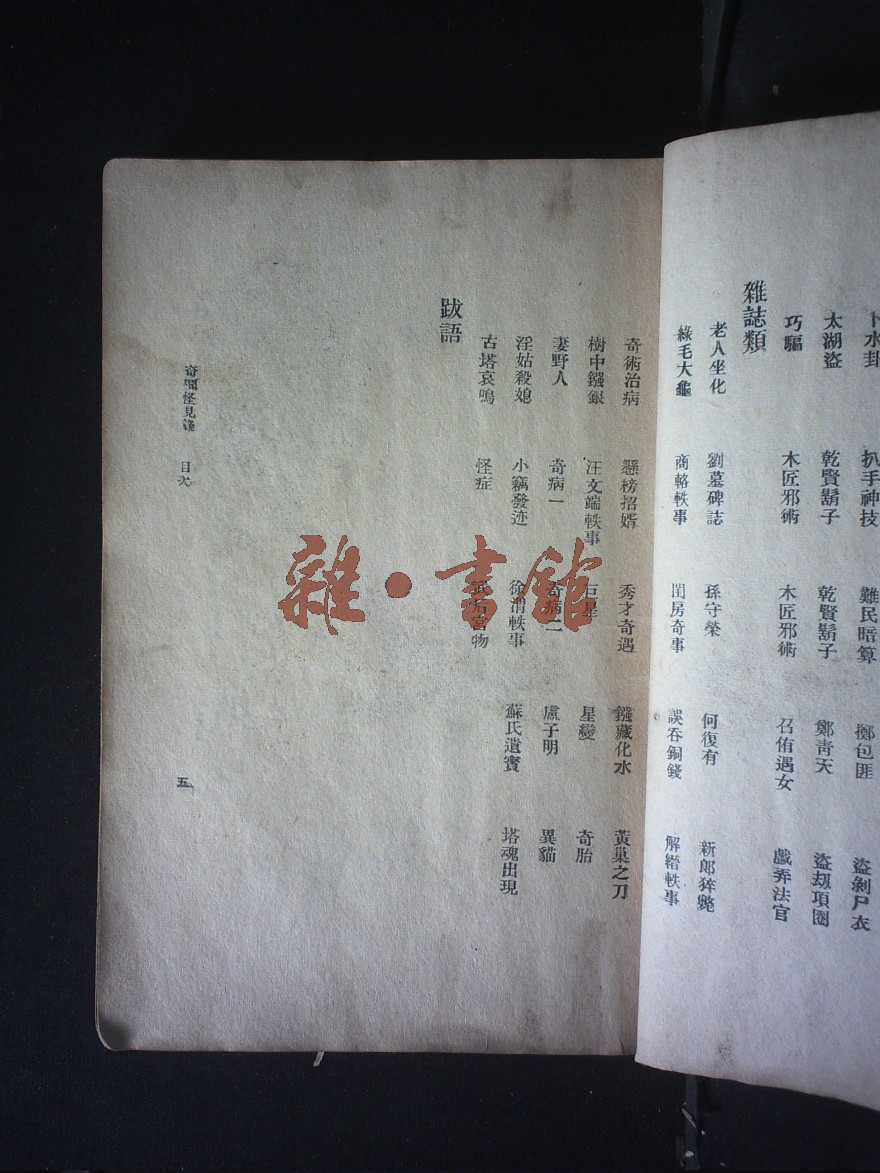 卜水卦 扒手神技 難民暗算 擲包匪 盜剝尸衣
太湖盜 乾賢鬍子 乾賢鬍子 鄭青天 盜刼項圈
巧騙 木匠邪術 木匠邪術 召侑遇女 戲弄法官
雜誌類
老人坐化 劉墓碑誌 孫守榮 何復有 新郎猝斃
綠毛大龜 商輅軼事 閨房奇事 誤吞銅錢 解縉軼事
奇術治病 懸榜招婿 秀才奇遇 鏹藏化水 黃巢之刀
樹中鏹銀 汪文端軼事 巨星 星變 奇胎
妻野人 奇病一 奇病二 盧子明 異貓
淫姑殺媳 小竊發迹 徐渭軼事 蘇氏遺寶 塔魂出現
古塔哀鳴 怪症 宮物
跋語
奇聞怪見錄 目次
五
雜·書館